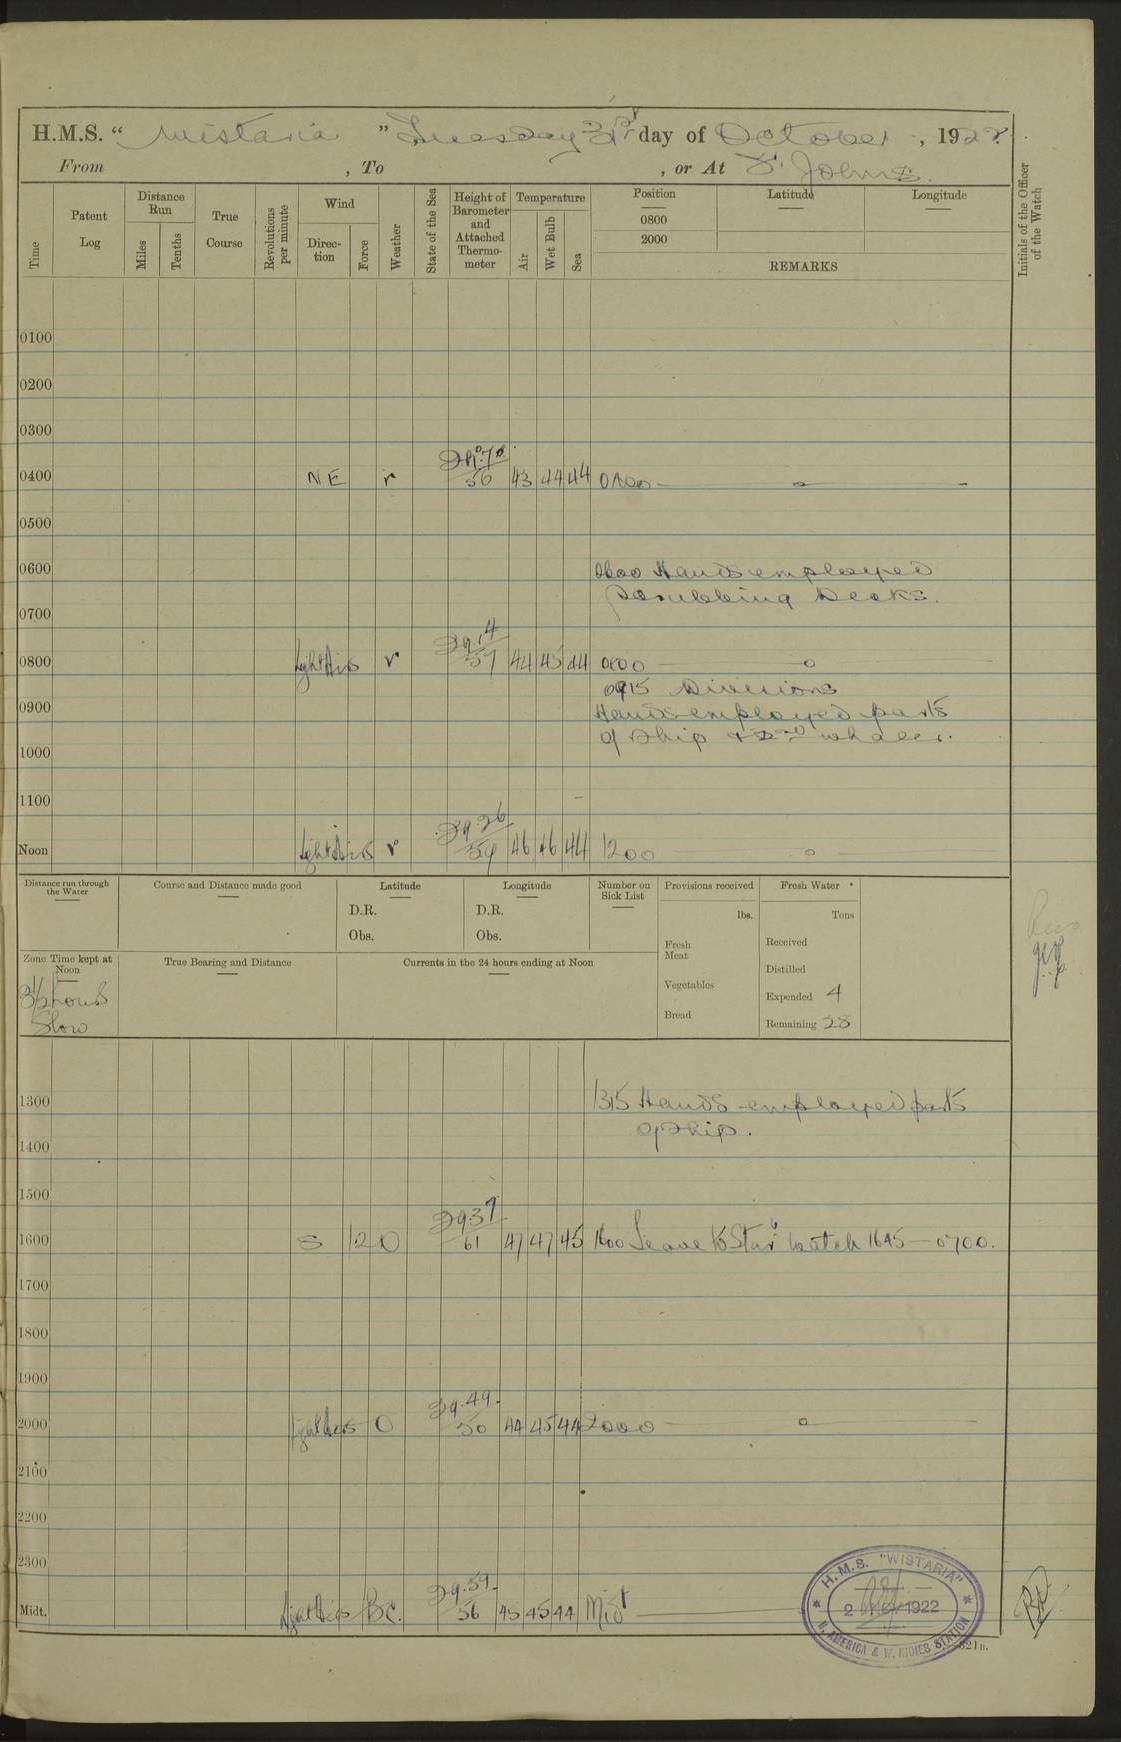 H.M.S. “ Wistaria ” Tuesday 31st day of October , 1922.
From , To , or At St. Johns.
Time
Patent Log
Distance Run
Miles
Tenths
True Course
Revolutions per minute
Wind
Direc-tion
Force
Weather
State of the Sea
Height of Barometer and Attached Thermo-meter
Temperature
Air
Wet Bulb
Sea
Position
0800
2000
Latitude
Longitude
REMARKS
Initials of the Officer of the Watch
0100
0200
0300
0400 NE r 56 43 44 44 0400
0500
0600 0600 Hands employed
Scrubbing Decks.
0700
29.14
0800 Light Airs r 57 44 45 44 0800
0915 Divisions
0900 Hands employed parts
of Ship & 2nd whaler.
1000
1100
29.26
Noon Light Airs r 59 46 46 44 1200
Distance run through the Water
Course and Distance made good
Latitude
D.R.
Obs.
Longitude
D.R.
Obs.
Number on Sick List
Provisions received
lbs.
Fresh Meat
Vegetables
Bread
Fresh Water
Tons
Received
Distilled
Expended 4
Remaining 28
Zone Time kept at Noon
3½ hours
Slow
True Bearing and Distance
Currents in the 24 hours ending at Noon
1300 1315 Hands employed parts
of Ship.
1400
1500
29.37
1600 S 1 2 O 61 47 47 45 1600 Leave to Starb watch 1645 — 0700.
1700
1800
1900
29.49
2000 Light Airs O 50 44 45 44 2000
2100
2200
2300
29.54
Midt. Light Airs BC. 56 45 45 44 Midt
H.M.S. "WISTARIA"
2 1922
N. AMERICA & W. INDIES STATION